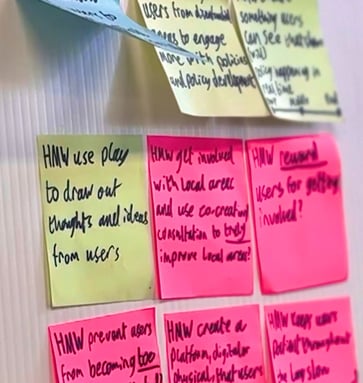 users from
to engage
more with policies
and policy development
something users
can see
happening in
real time
HMW use play
to draw out
thoughts and ideas
from users
HMW get involved
with local areas
and use co-creation
consultation to truly
improve local areas?
HMW reward
users for getting
involved?
HMW prevent users
from becoming too
HMW create a
platform, digital or
physical, that users
HMW keep user
patient throughout
the long slow